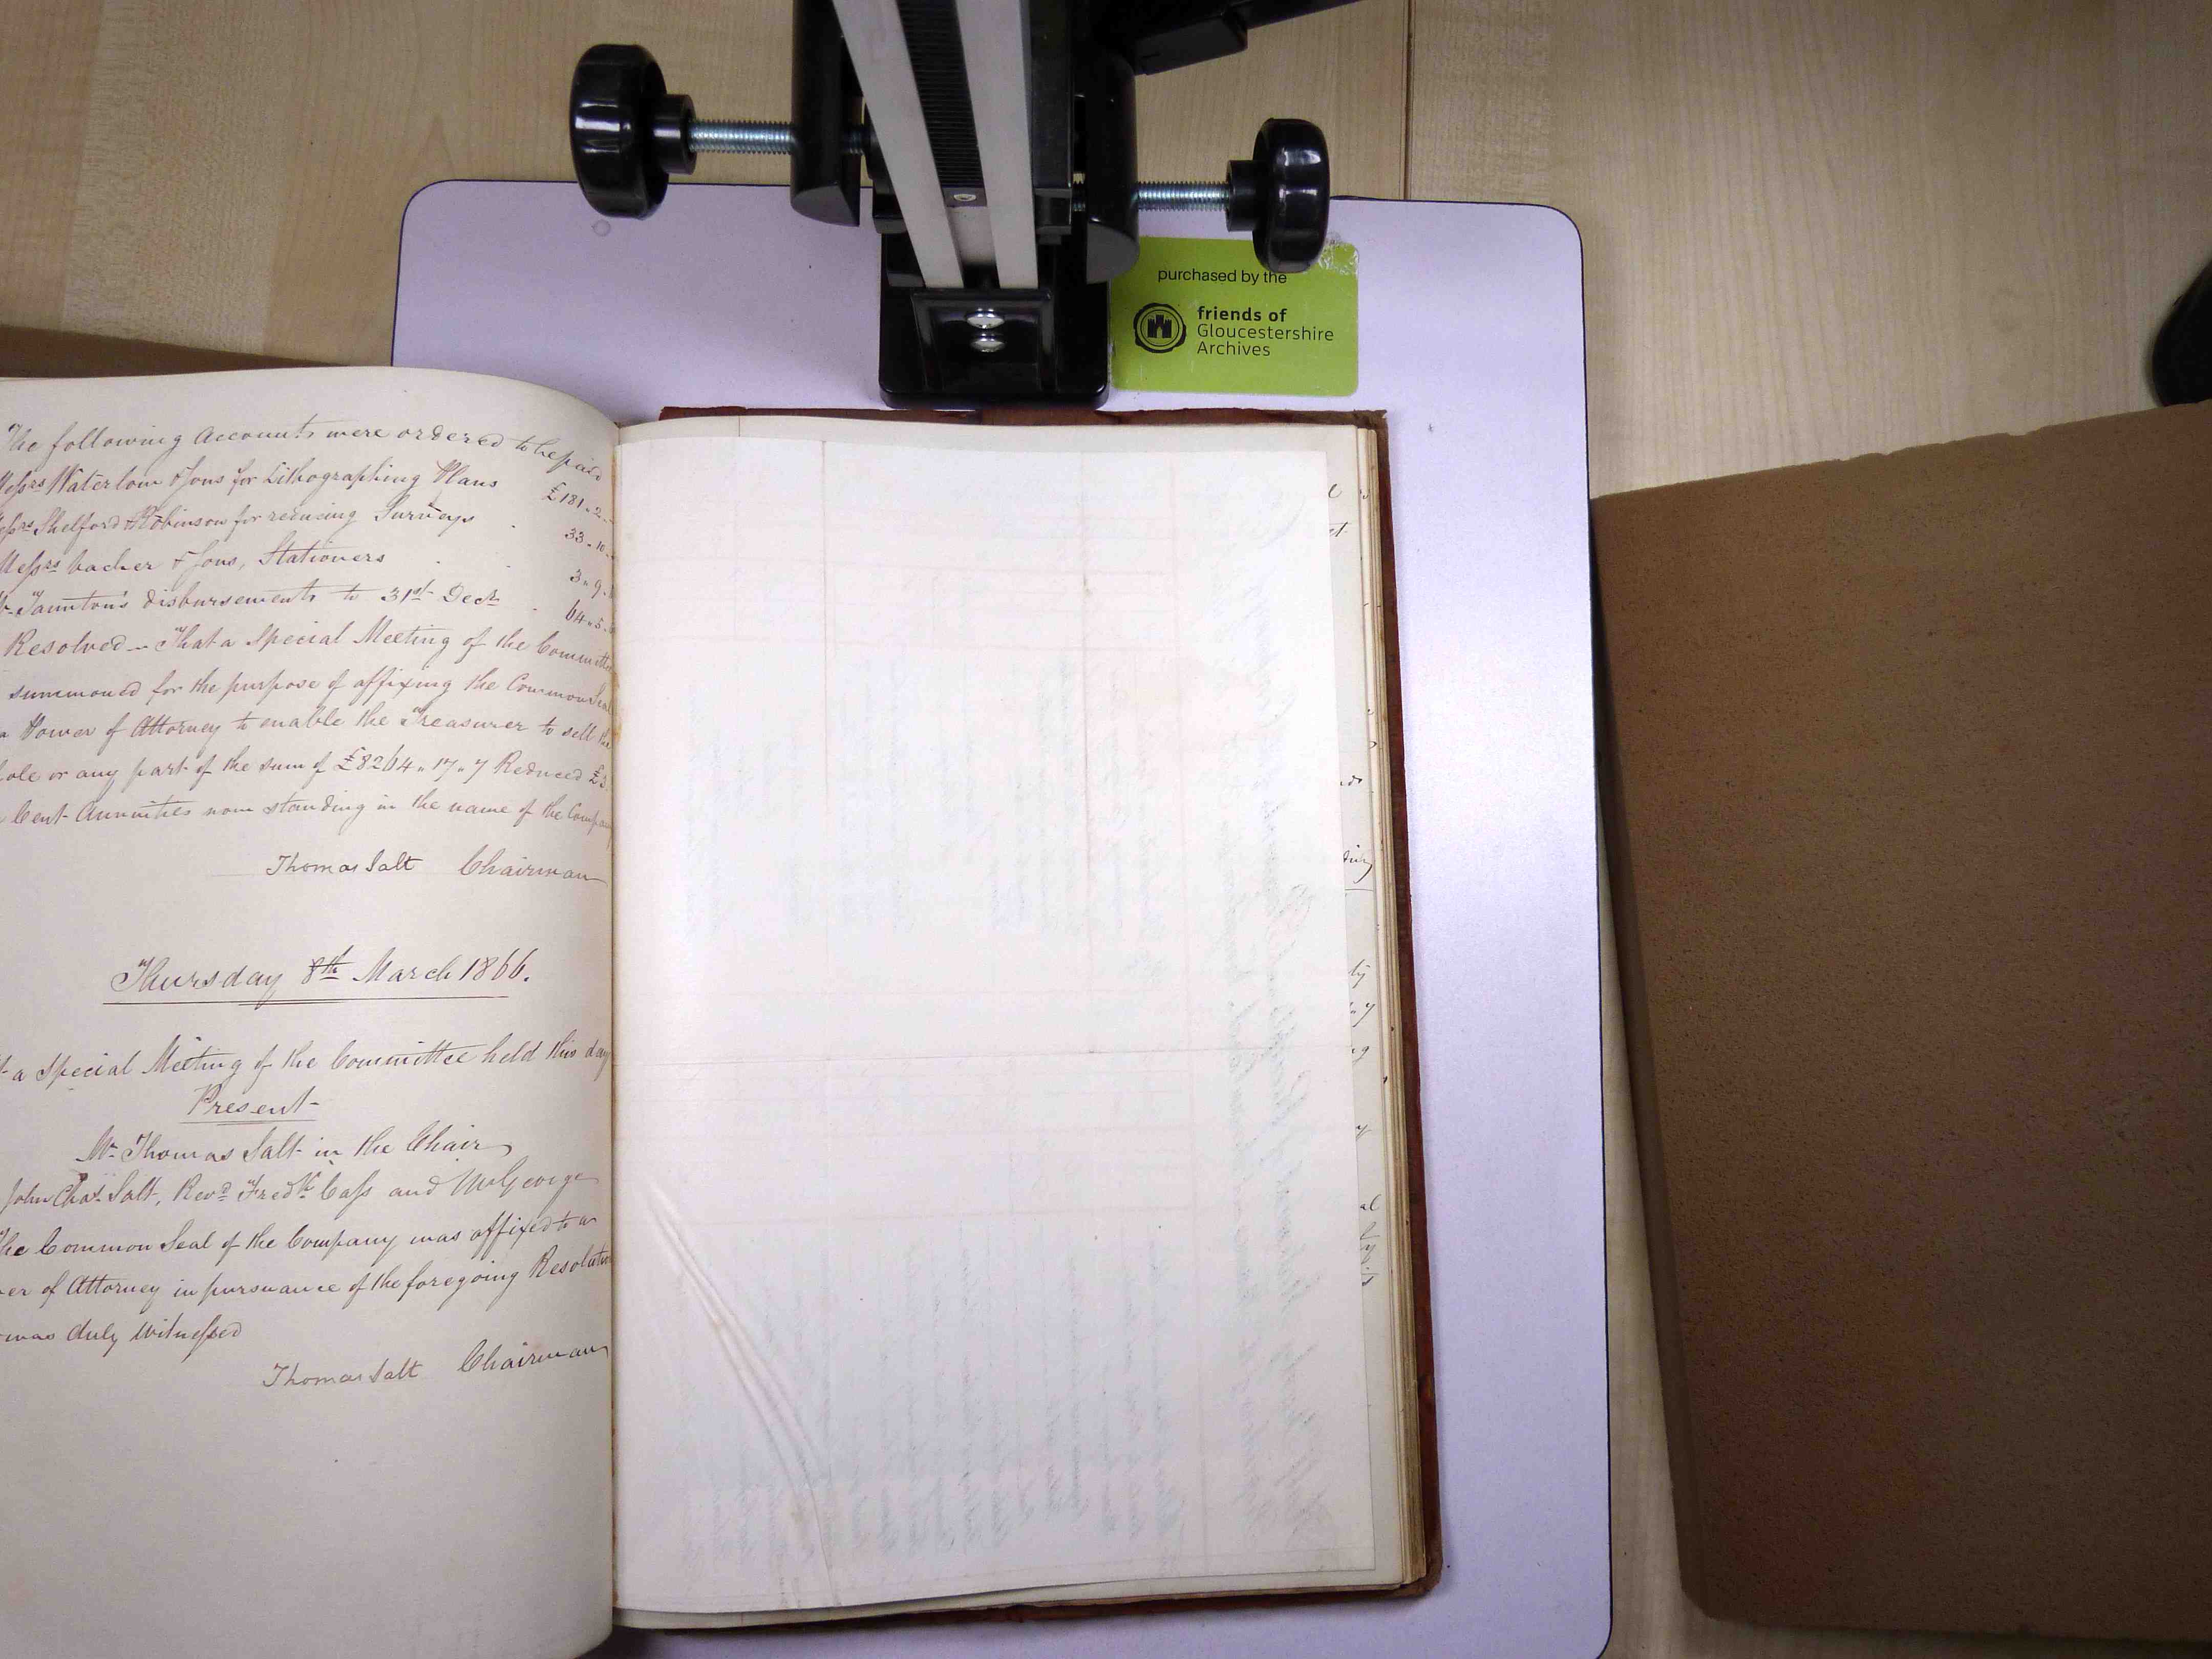 purchased by the
friends of
Gloucestershire
Archives
The following Accounts were ordered to be paid
Messrs Waterlow & Sons for Lithographing Plans £181. 2.
Messrs Shelford & Robinson for reducing Surveys 33. 10.
Messrs Vacher & Sons, Stationers 3. 9.
Taunton's disbursements to 31st Decr 64. 5.
Resolved - That a Special Meeting of the Committee
summoned for the purpose of affixing the Common Seal
a Power of Attorney to enable the Treasurer to sell the
ole or any part of the sum of £8264. 17. 7 Reduced £3
Cent Annuities now standing in the name of the Company
Thomas Salt Chairman
Thursday 8th March 1866.
t a Special Meeting of the Committee held this day
Present
Mr. Thomas Salt in the Chair
John Chas. Salt, Revd. Fredk. Cass and Mr George
The Common Seal of the Company was affixed to a
er of Attorney in pursuance of the foregoing Resolution
was duly Witnessed
Thomas Salt Chairman